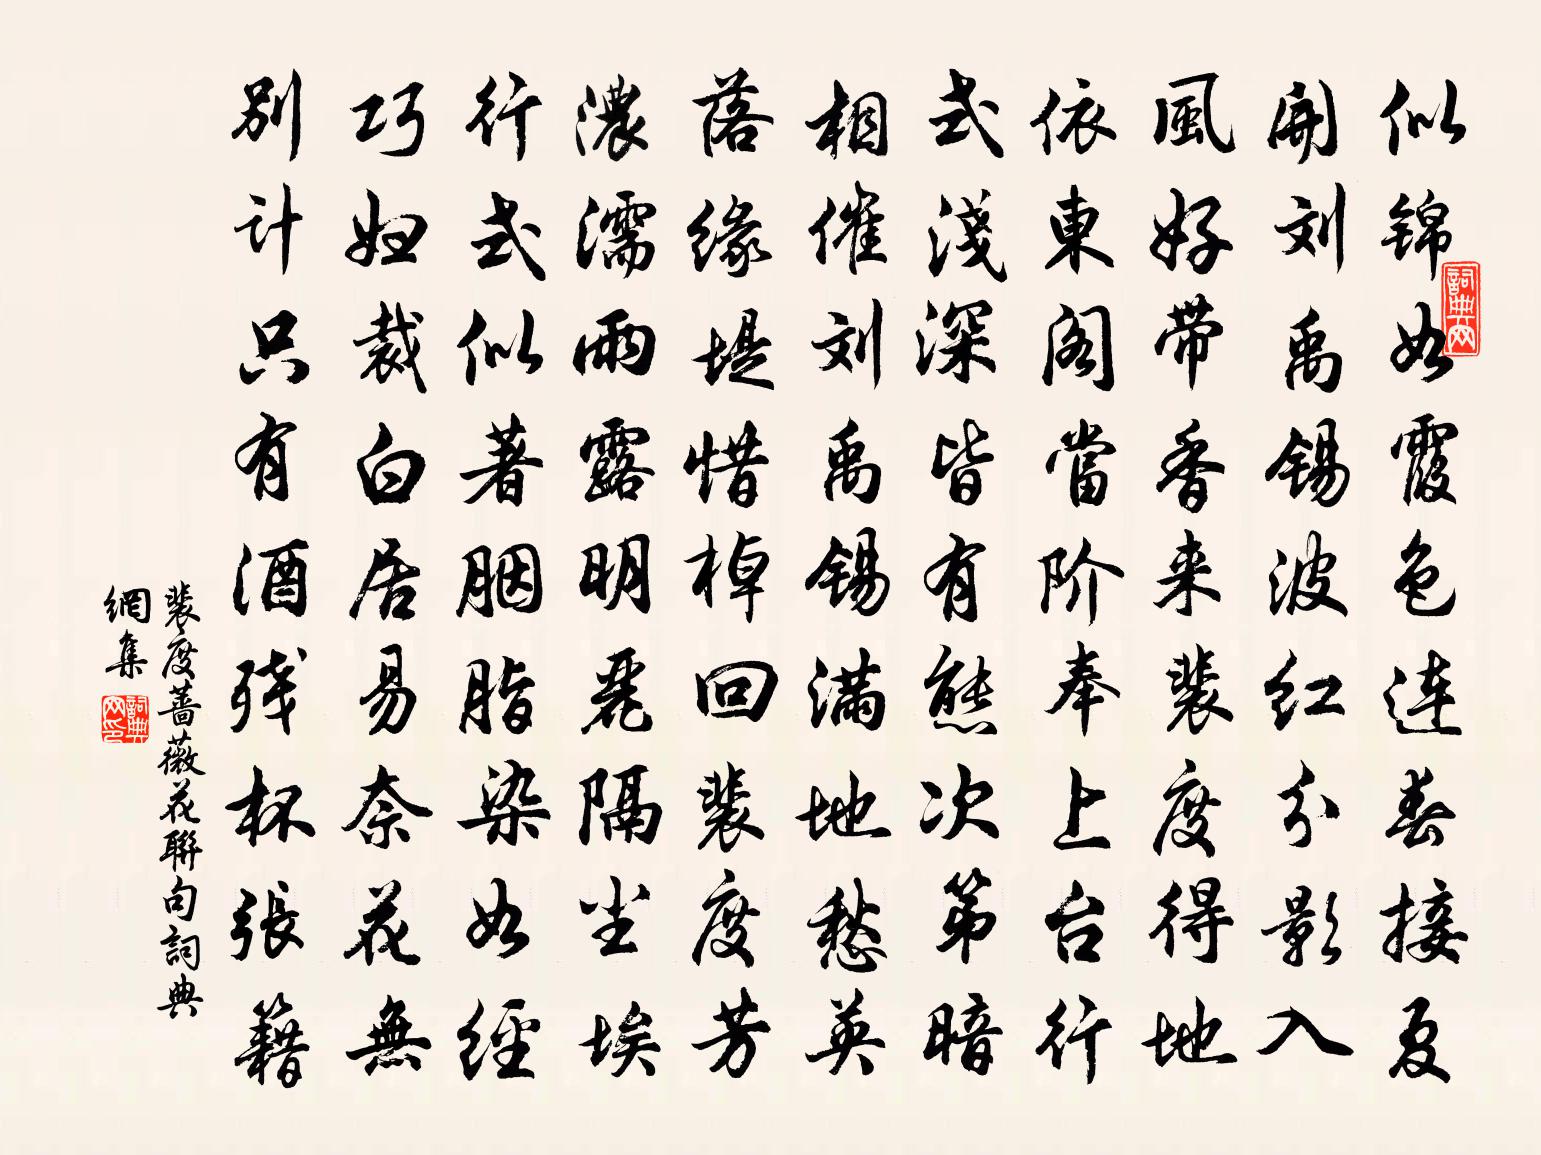 似锦如霞色连春接夏
開刘禹锡波红分影入
風好带香来裴度得地
依東阁當阶奉上台行
式淺深皆有態次第暗
相催刘禹锡满地愁英
落缘堤惜棹回裴度芳
濃濡雨露明麗隔尘埃
行式似著胭脂染如经
巧妇裁白居易奈花無
别计只有酒残杯張籍
裴度蔷薇花聯句詞典
網集
詞典网
詞典网印